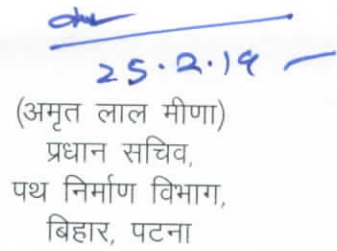 25.2.19
(अमृत लाल मीणा)
प्रधान सचिव,
पथ निर्माण विभाग,
बिहार, पटना